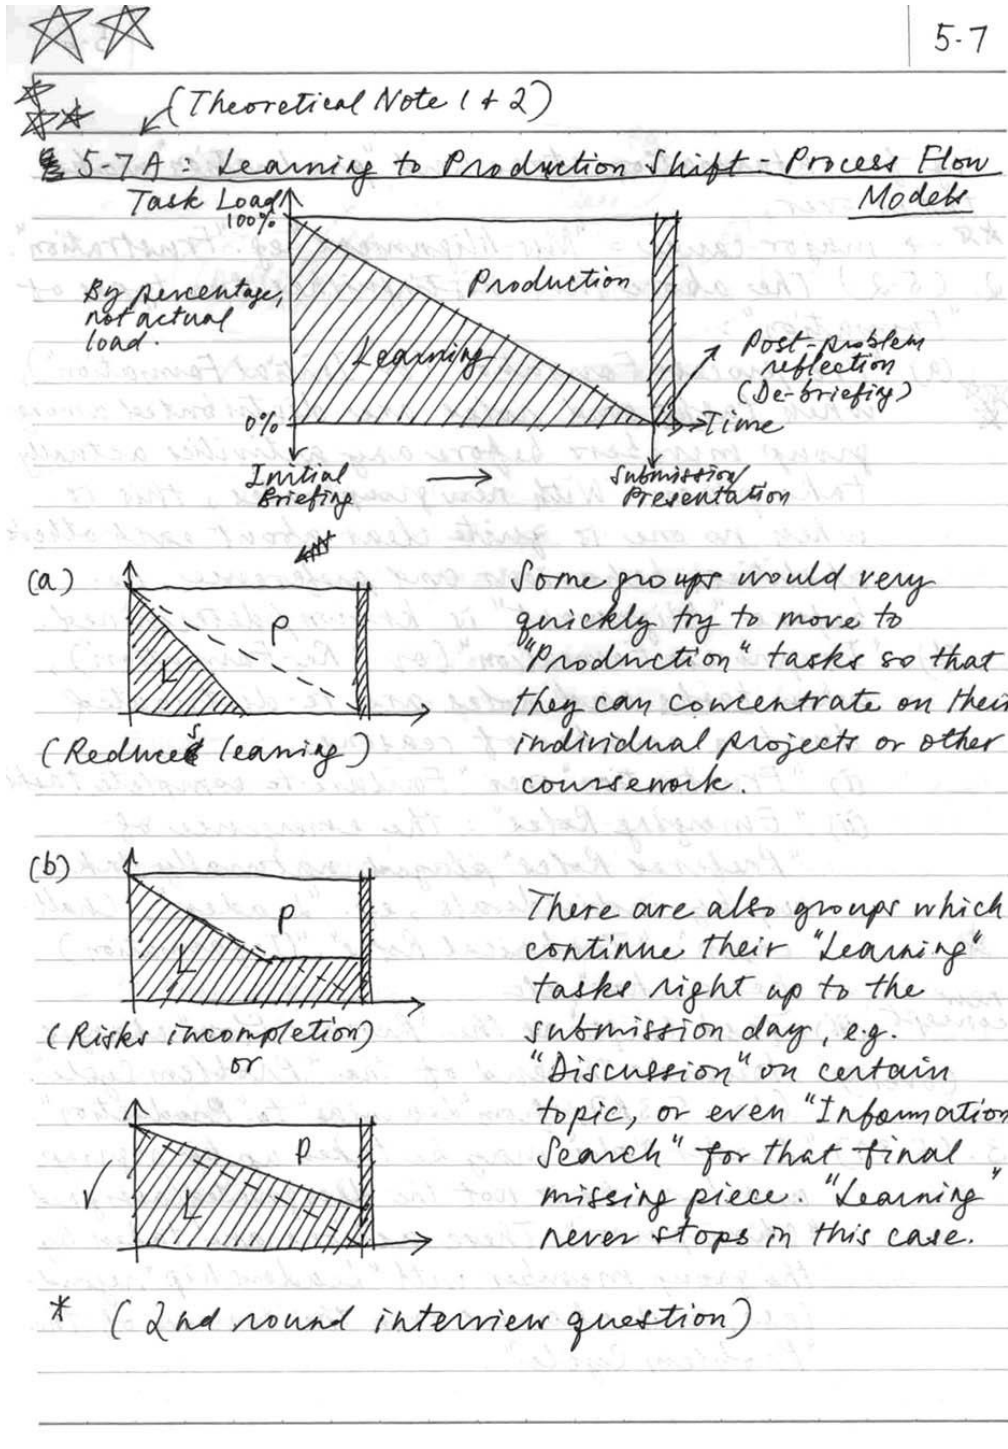 5-7
(Theoretical Note 1 + 2)
5-7A: Learning to Production Shift - Process Flow
Models
Task Load
100%
Production
By percentage,
not actual
load.
Learning
Post-problem
reflection
(De-briefing)
0%
Time
Initial
Briefing
Submission/
Presentation
(a)
P
L
(Reduces leaning)
Some groups would very
quickly try to move to
"Production" tasks so that
they can concentrate on their
individual projects or other
coursework.
(b)
P
L
(Risks incompletion)
or
P
L
There are also groups which
continue their "Learning"
tasks right up to the
submission day, e.g.
"Discussion" on certain
topic, or even "Information
Search" for that final
missing piece. "Learning"
never stops in this case.
* (2nd round interview question) *